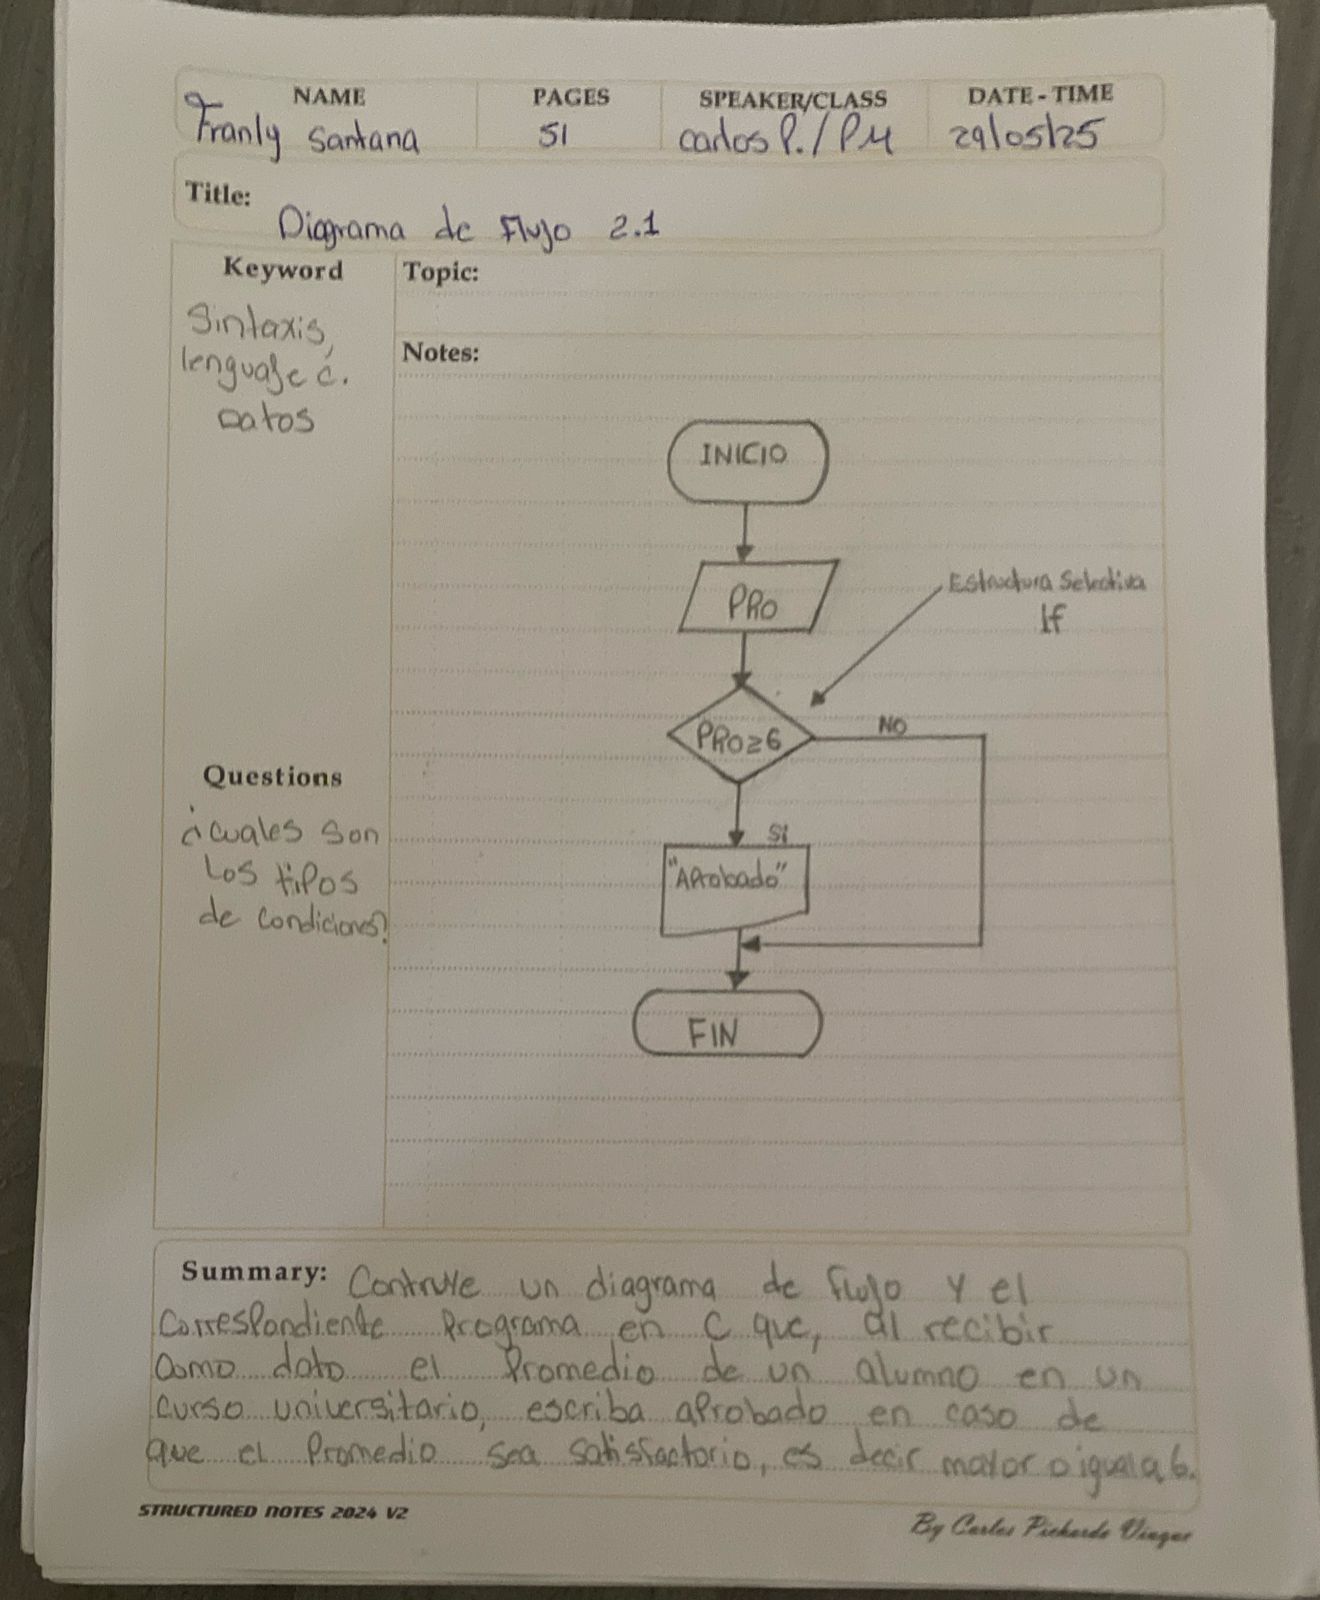 NAME PAGES SPEAKER/CLASS DATE-TIME
Franly Santana 51 Carlos P. / PM 29/05/25
Title:
Diagrama de Flujo 2.1
Keyword
Sintaxis,
lenguaje c.
Datos
Topic:
Notes:
INICIO
PRO
Estructura Selectiva
If
PRO≥6
NO
Si
"Aprobado"
FIN
Questions
¿cuales son
Los tipos
de condiciones?
Summary: Contruye un diagrama de flujo y el
correspondiente programa en C que, al recibir
como dato el promedio de un alumno en un
curso universitario, escriba aprobado en caso de
que el promedio sea satisfactorio, es decir mayor o igual a 6.
STRUCTURED NOTES 2024 V2
By Carlos Pichardo Viuque